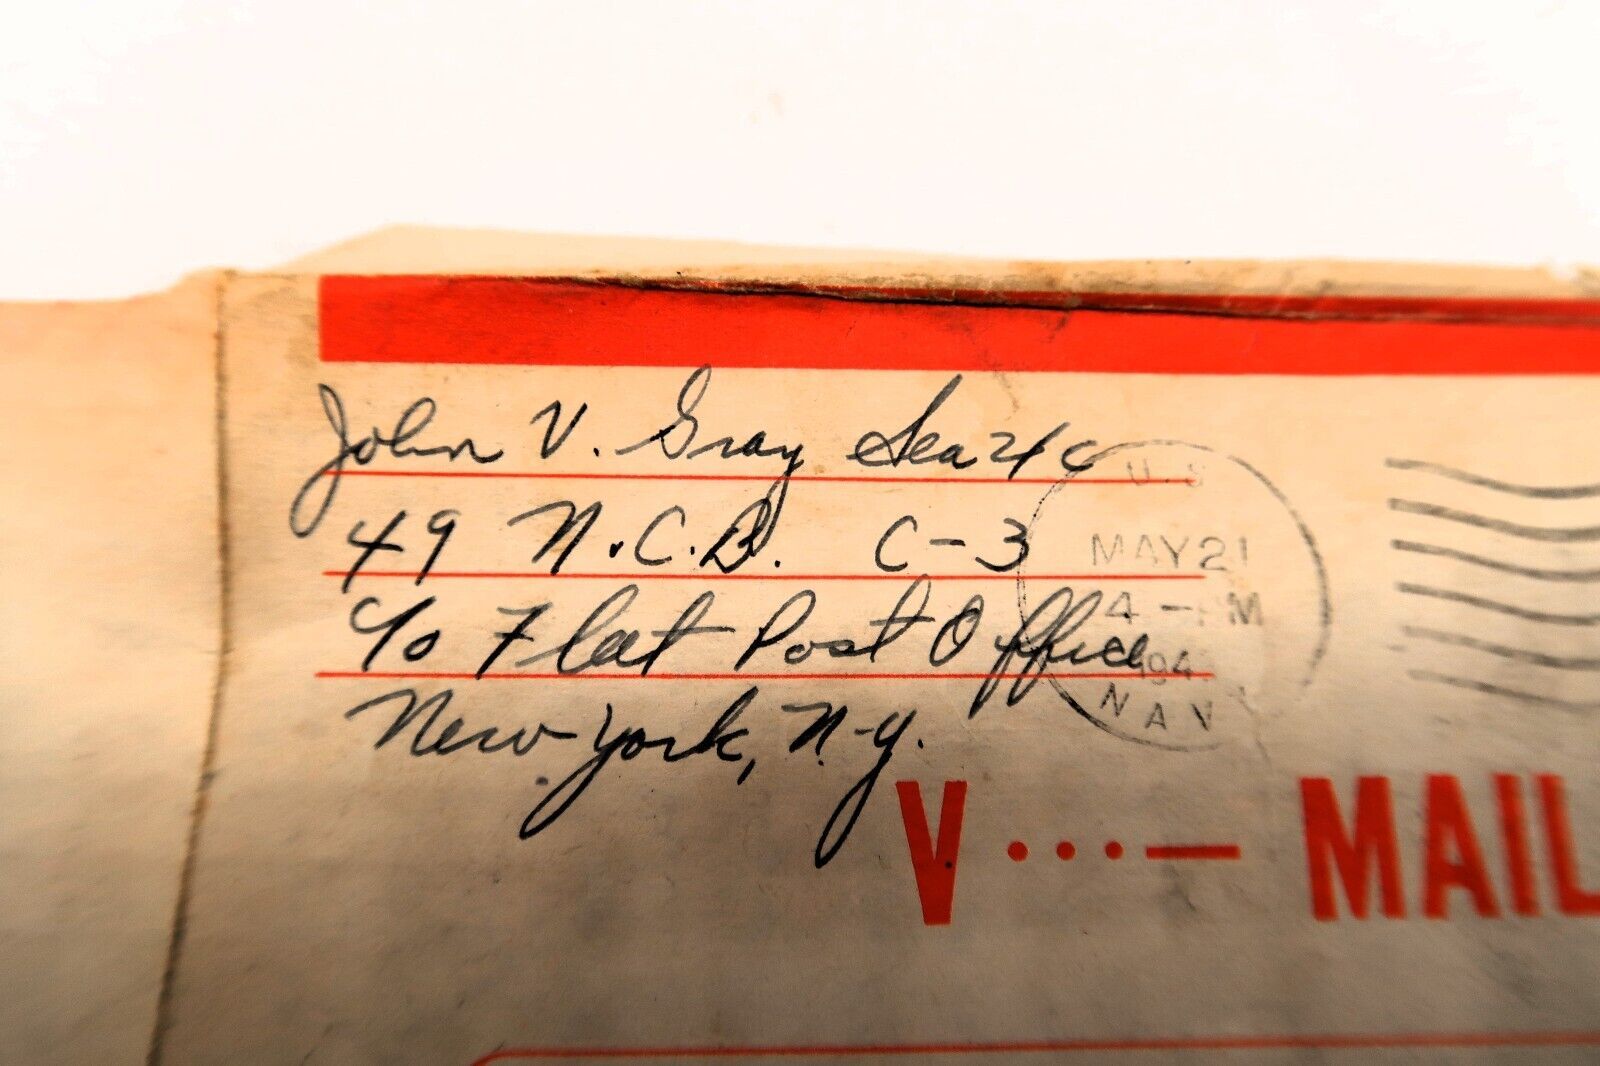 John V. Gray Sea 2/c
49 N.C.B. C-3
c/o Fleet Post Office
New York, N.Y.
U.S
MAY 21
4 - PM
194
NAVY
V ···— MAIL